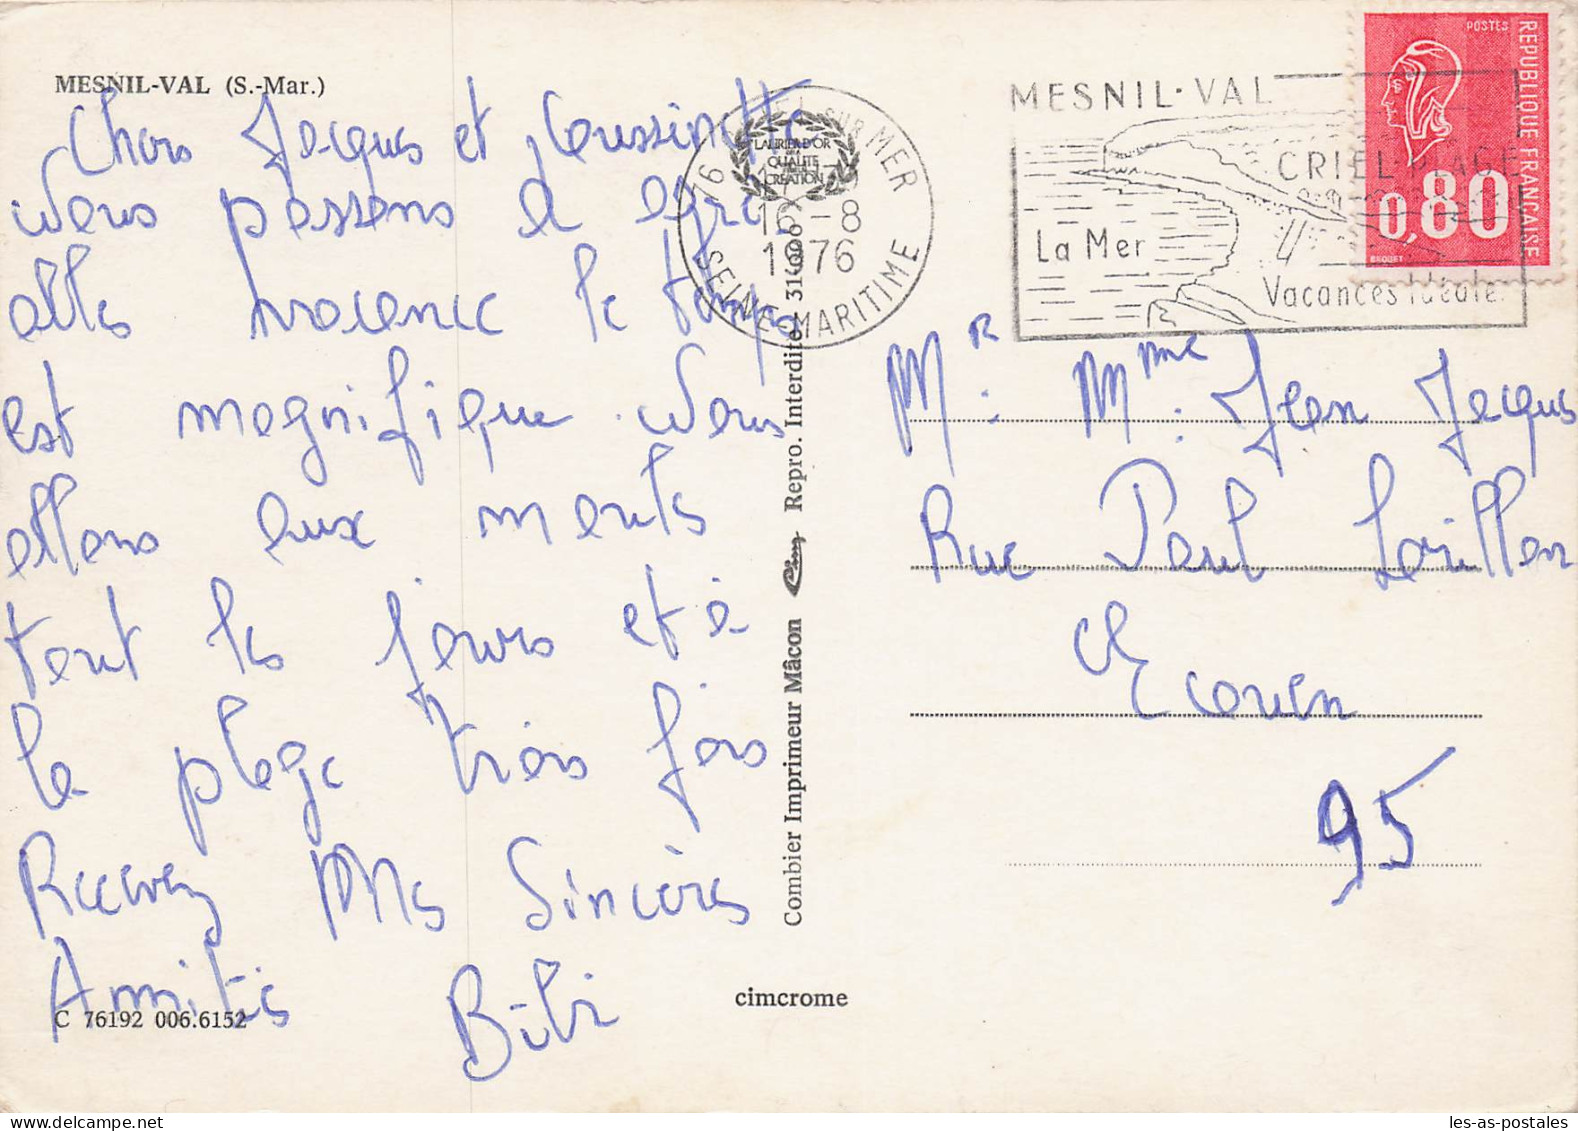 MESNIL-VAL (S.-Mar.)
Chers Jacques et Coussinette
Nous passons d
elles vacances le temps
est magnifique. Nous
allons aux mouls
tout les jours et à
la plage trois fois
Recevez Mes Sincères
Amitiés Bibi
C 76192 006.6152
cimcrome
Combier Imprimeur Mâcon Cim Repro. Interdite 31
LAURIER D'OR
QUALITE
CREATION
76 CRIEL SUR MER
16-8
1976
SEINE-MARITIME
MESNIL-VAL
CRIEL-PLAGE
La Mer
Vacances Idéale
POSTES
REPUBLIQUE FRANÇAISE
0,80
BEQUET
Mr. Mme. Jean Jacques
Rue Paul Lorillon
Ecouen
95
les-as-postales